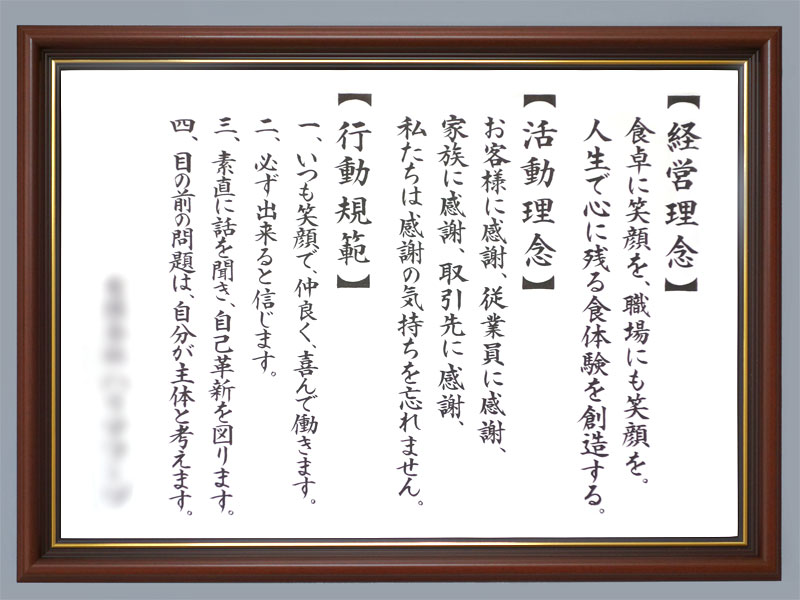 【経営理念】
食卓に笑顔を、職場にも笑顔を。
人生で心に残る食体験を創造する。
【活動理念】
お客様に感謝、従業員に感謝、
家族に感謝、取引先に感謝、
私たちは感謝の気持ちを忘れません。
【行動規範】
一、いつも笑顔で、仲良く、喜んで働きます。
二、必ず出来ると信じます。
三、素直に話を聞き、自己革新を図ります。
四、目の前の問題は、自分が主体と考えます。